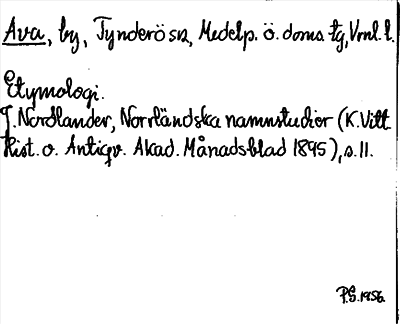 Ava, by, Tynderö sn, Medelp. ö. doms. tg, Vrnl. l.
Etymologi.
J. Nordlander, Norrländska namnstudier (K. Vitt.
Hist. o. Antiqv. Akad. Månadsblad 1895), s. 11.
P.G. 1956.